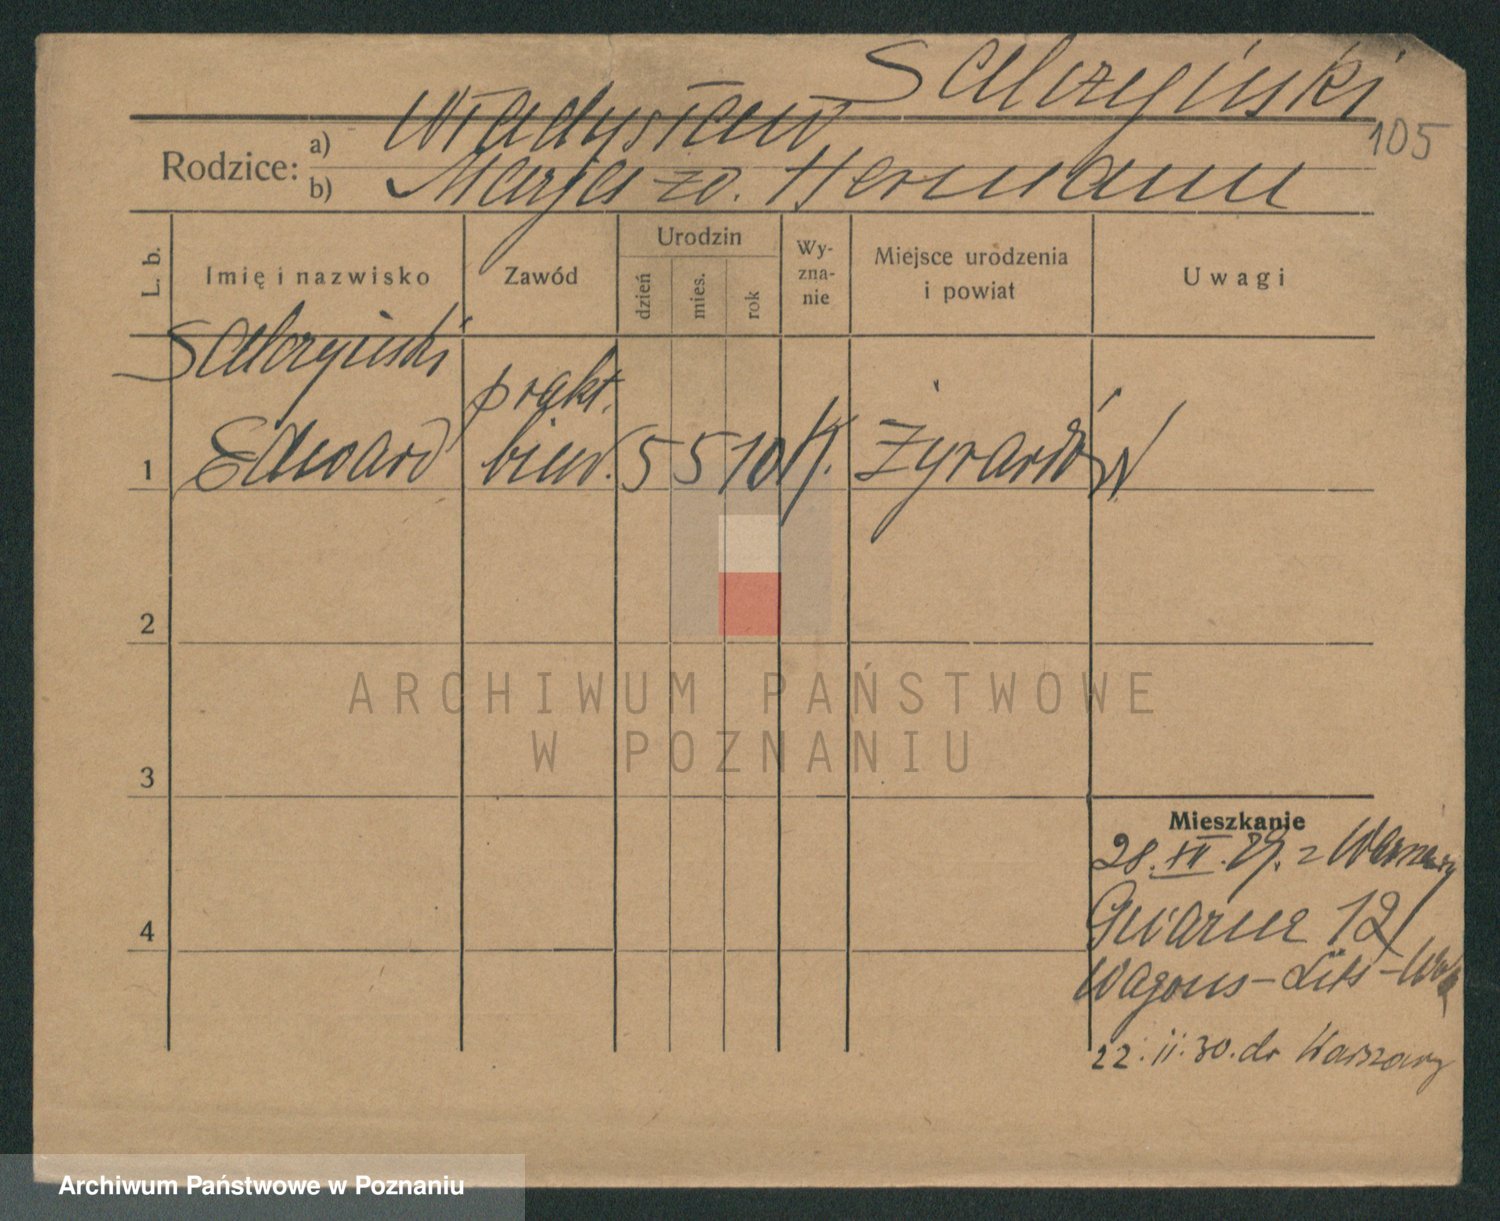 Salczyński
105
Rodzice:
a) Władysław
b) Marja zd. Hermann
L. b.
Imię i nazwisko
Zawód
Urodzin
dzień
mies.
rok
Wy-
zna-
nie
Miejsce urodzenia
i powiat
Uwagi
Salczyński prakt.
1 Edward biur. 5 5 10 k. Żyrardów
2
3
4
Mieszkanie
28. XII. 29. z Warszawy
Gwarna 12
Wagons-Lits-
22. II. 30. do Warszawy
ARCHIWUM PAŃSTWOWE
W POZNANIU
Archiwum Państwowe w Poznaniu